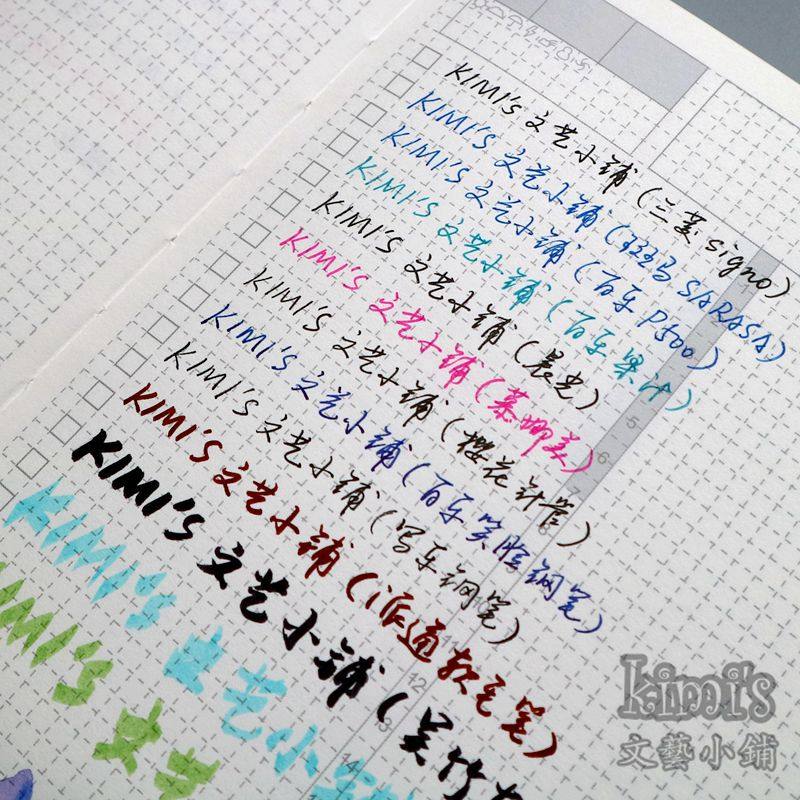 KIMI's 文艺小铺 (三菱signo)
KIMI's 文艺小铺 (斑马SARASA)
KIMI's 文艺小铺 (百乐P500)
KIMI's 文艺小铺 (百乐果汁)
KIMI's 文艺小铺 (晨光)
KIMI's 文艺小铺 (慕娜美)
KIMI's 文艺小铺 (樱花针管)
KIMI's 文艺小铺 (百乐笑脸钢笔)
KIMI's 文艺小铺 (写乐钢笔)
KIMI's 文艺小铺 (派通软毛笔)
KIMI's 文艺小铺 (吴竹
KIMI's 文艺小
KIMI's 文艺
5
6
7
12
14
kimi's
文藝小鋪